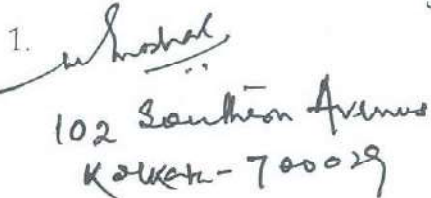 1.
102 Southern Avenue
Kolkata - 700029